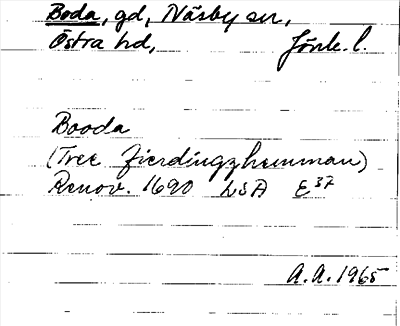 Boda, gd, Näsby sn,
Östra hd, Jönk. l.
Booda
(Tree Fierdingzhemman)
Renov. 1690 LSA E³⁷
A.A. 1965